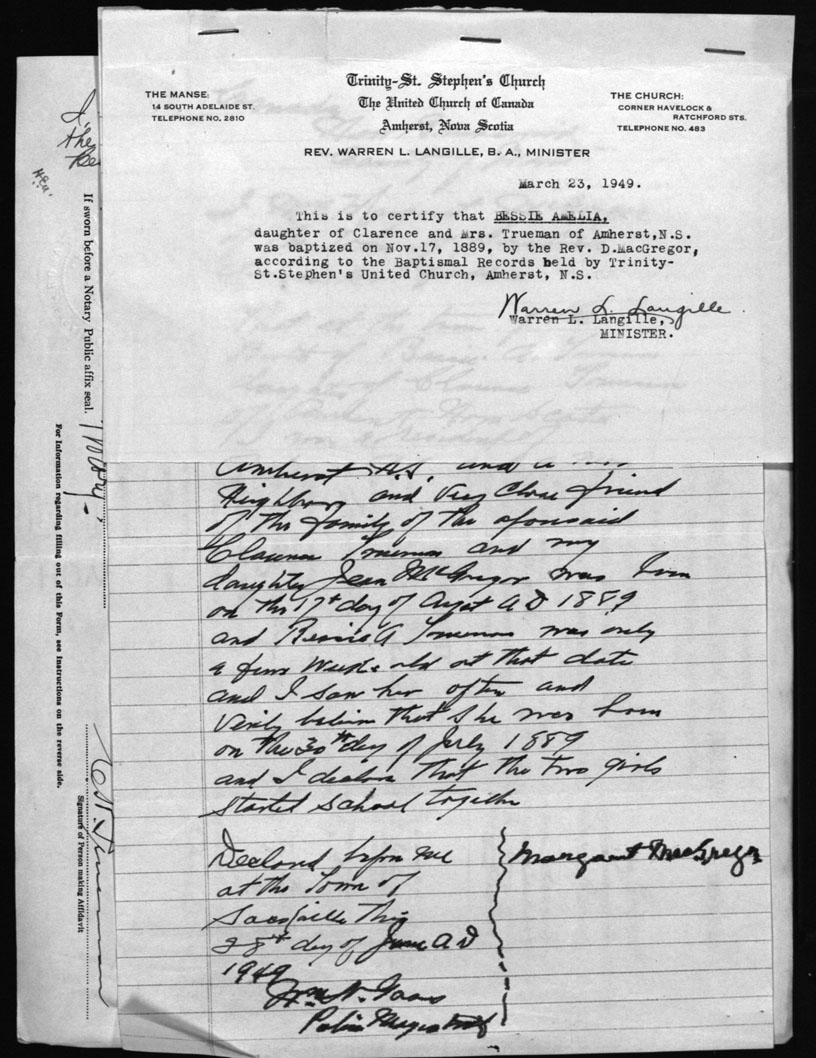 Trinity-St. Stephen's Church
The United Church of Canada
Amherst, Nova Scotia
THE MANSE:
14 SOUTH ADELAIDE ST.
TELEPHONE NO. 2810
THE CHURCH:
CORNER HAVELOCK &
RATCHFORD STS.
TELEPHONE NO. 483
REV. WARREN L. LANGILLE, B. A., MINISTER
March 23, 1949.
This is to certify that BESSIE AMELIA,
daughter of Clarence and Mrs. Trueman of Amherst,N.S.
was baptized on Nov.17, 1889, by the Rev. D.MacGregor,
according to the Baptismal Records held by Trinity-
St.Stephen's United Church, Amherst, N.S.
Warren L. Langille
Warren L. Langille,
MINISTER.
Amherst N.S. and a
Neighbor and Very Close friend
of the family of the aforesaid
Clarence Trueman and my
daughter Jean McGregor was born
on the 17th day of August A D 1889
and Bessie A Trueman was only
a few weeks old at that date
and I saw her often and
Verily believe that she was born
on the 30th day of July 1889
and I declare that the two girls
started school together
Declared before me
at the Town of
Sackville this
28th day of June A D
1949
Margaret MacGregor
If sworn before a Notary Public affix seal.
For Information regarding filling out of this Form, see Instructions on the reverse side.
Signature of Person making Affidavit